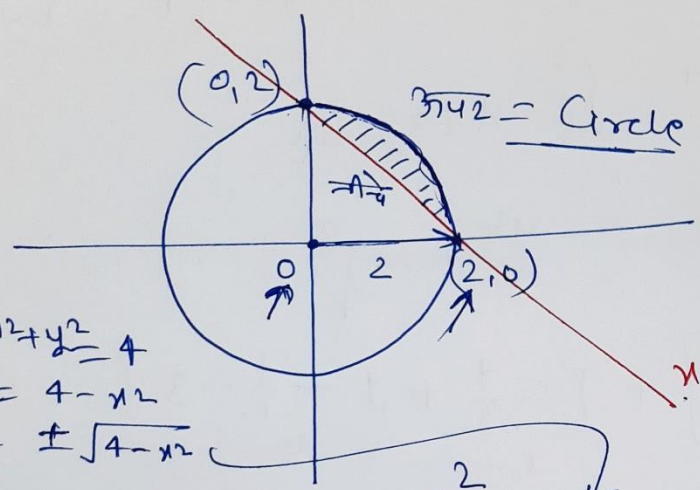 (0,2)
ऊपर = Circle
0
2
(2,0)
x² + y² = 4
= 4 - x²
± √4 - x²
x
2